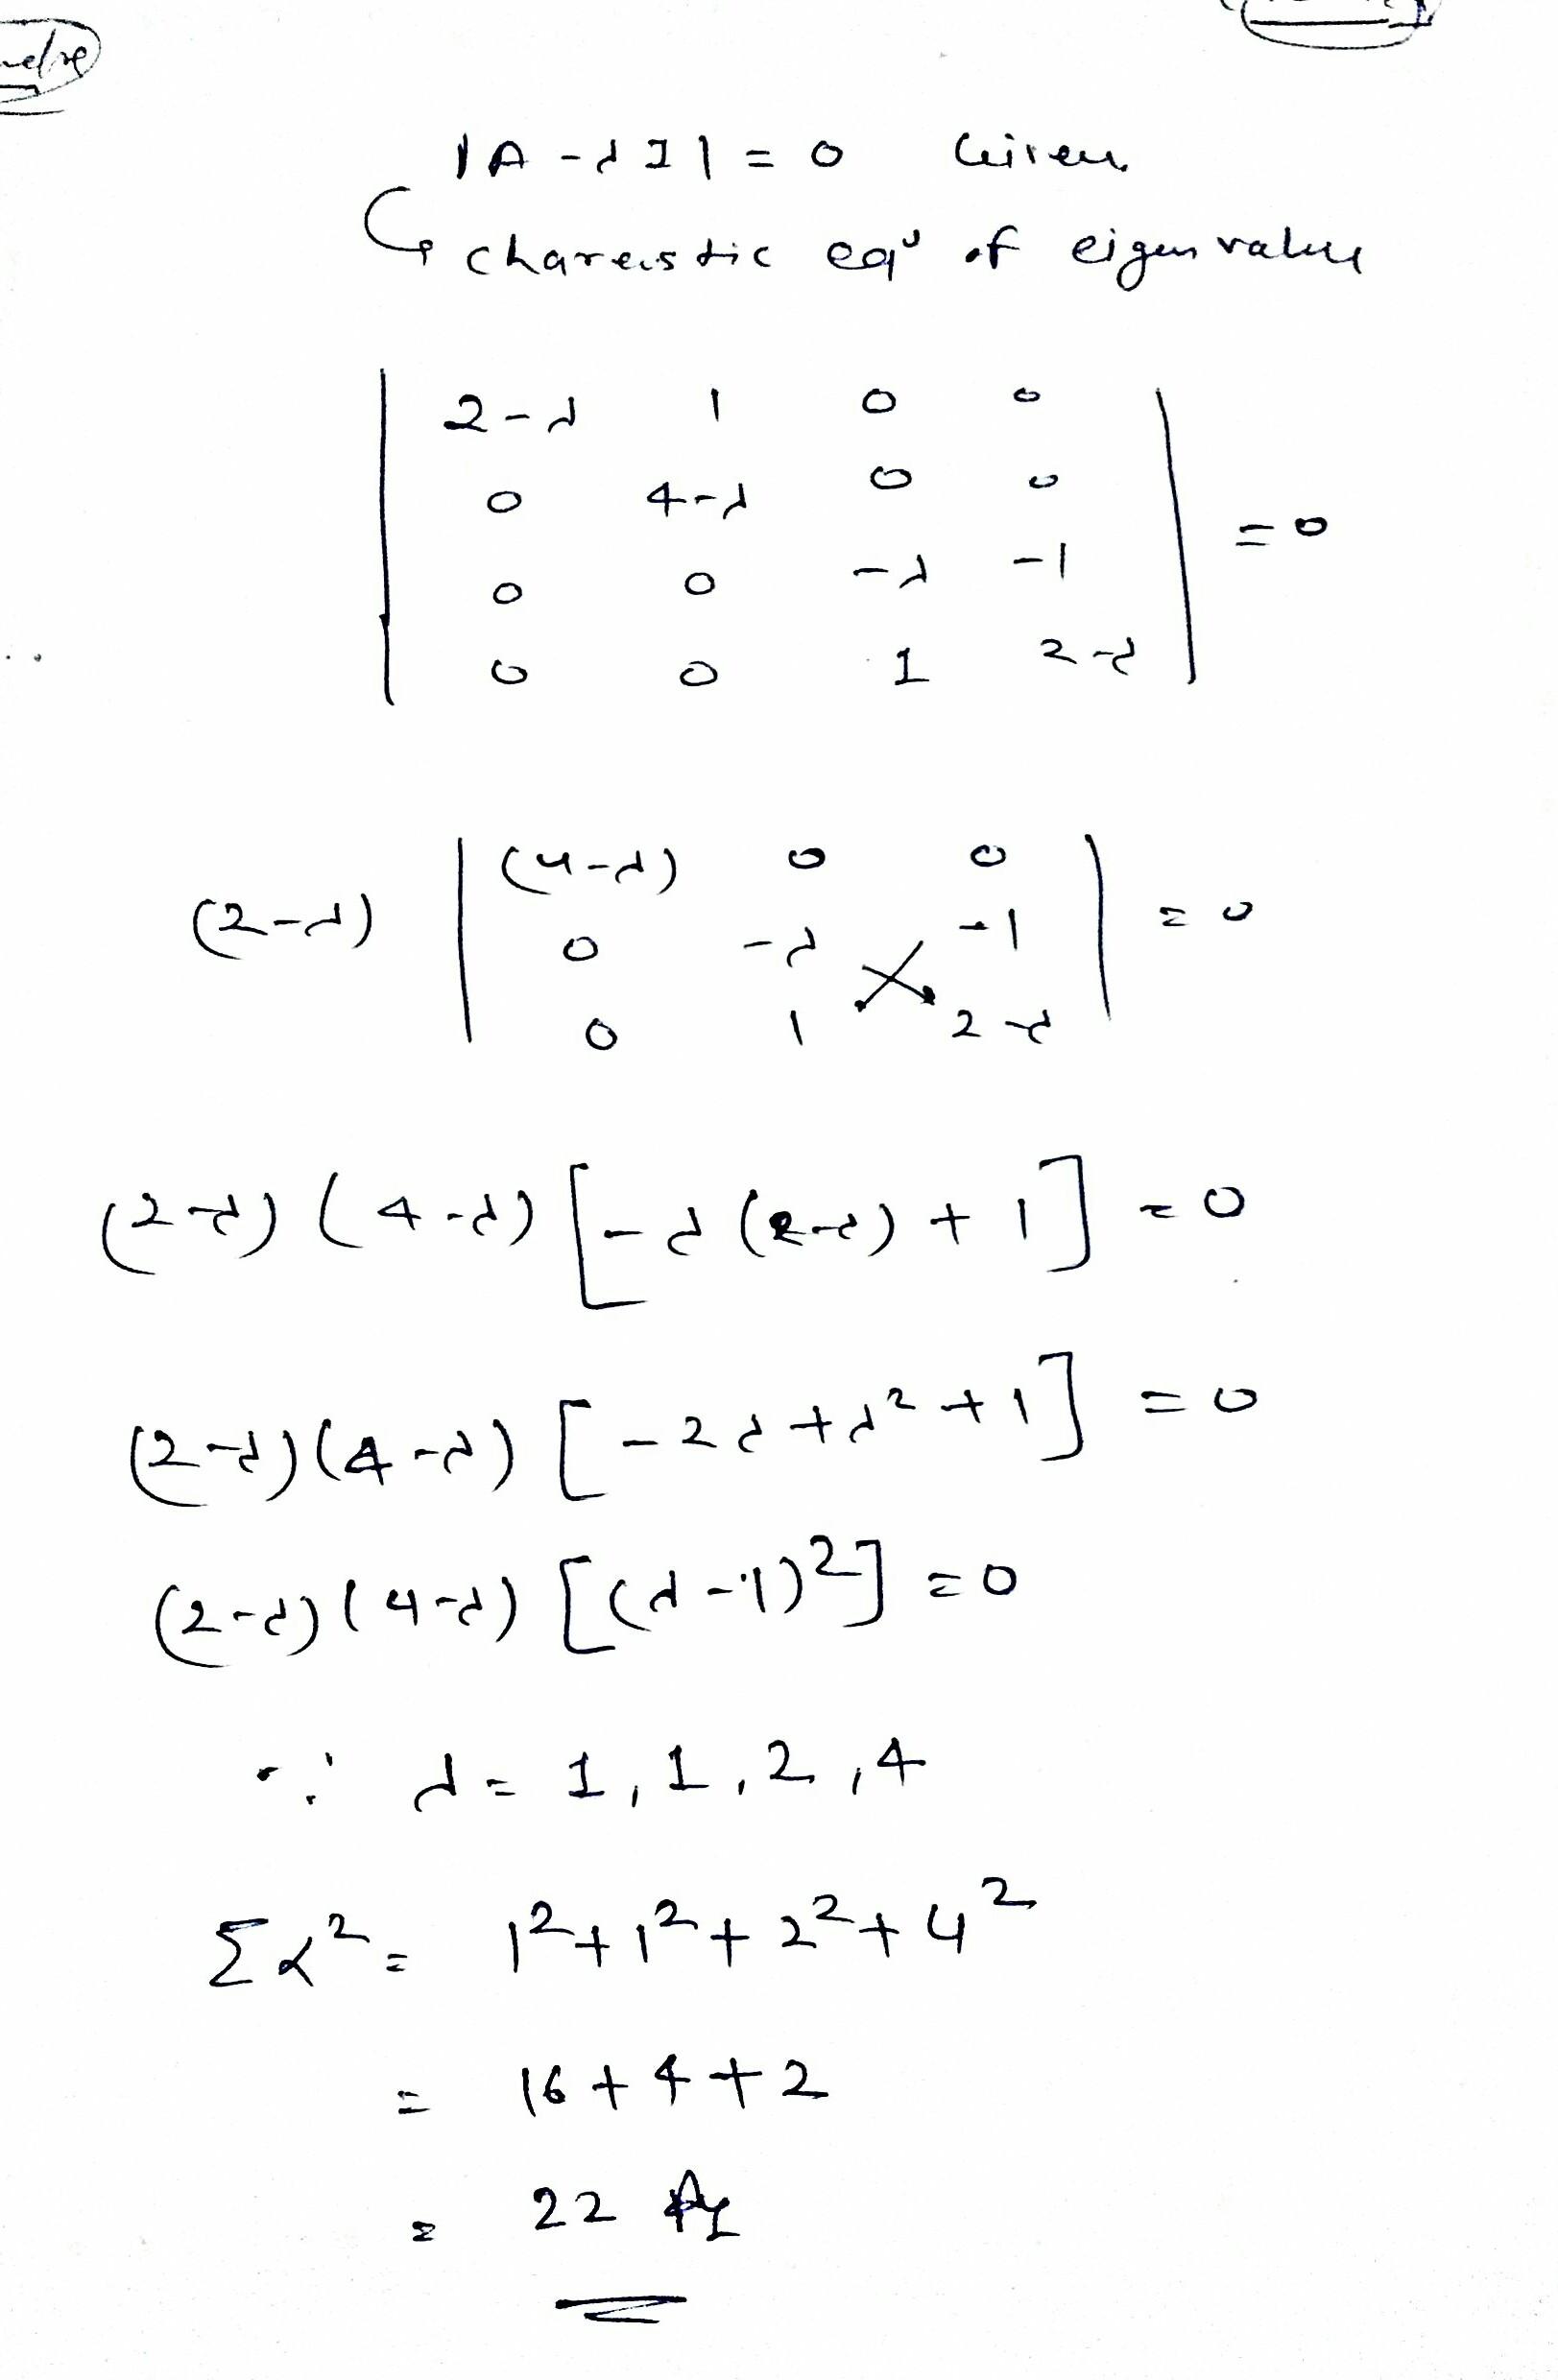 |A - λI| = 0 Given
chareistic eqⁿ of eigen value
| 2-λ 1 0 0 |
| 0 4-λ 0 0 | = 0
| 0 0 -λ -1 |
| 0 0 1 2-λ |
| (4-λ) 0 0 |
(2-λ) | 0 -λ -1 | = 0
| 0 1 2-λ |
(2-λ) (4-λ) [-λ (2-λ) + 1] = 0
(2-λ)(4-λ) [-2λ + λ² + 1] = 0
(2-λ)(4-λ) [(λ-1)²] = 0
∵ λ = 1, 1, 2, 4
Σα² = 1² + 1² + 2² + 4²
= 16 + 4 + 2
= 22